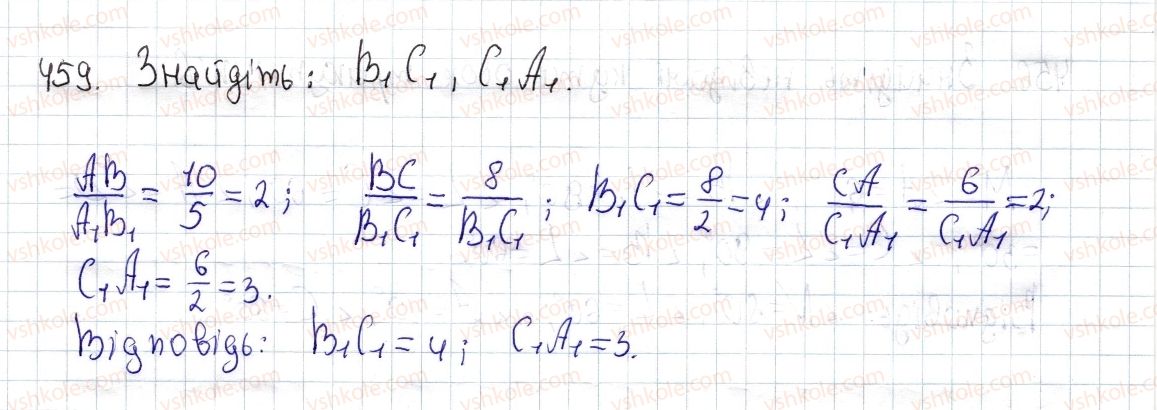 459. Знайдіть: B₁C₁, C₁A₁.
AB/A₁B₁ = 10/5 = 2; BC/B₁C₁ = 8/B₁C₁; B₁C₁ = 8/2 = 4; CA/C₁A₁ = 6/C₁A₁ = 2;
C₁A₁ = 6/2 = 3.
Відповідь: B₁C₁ = 4; C₁A₁ = 3.
vshkole.com